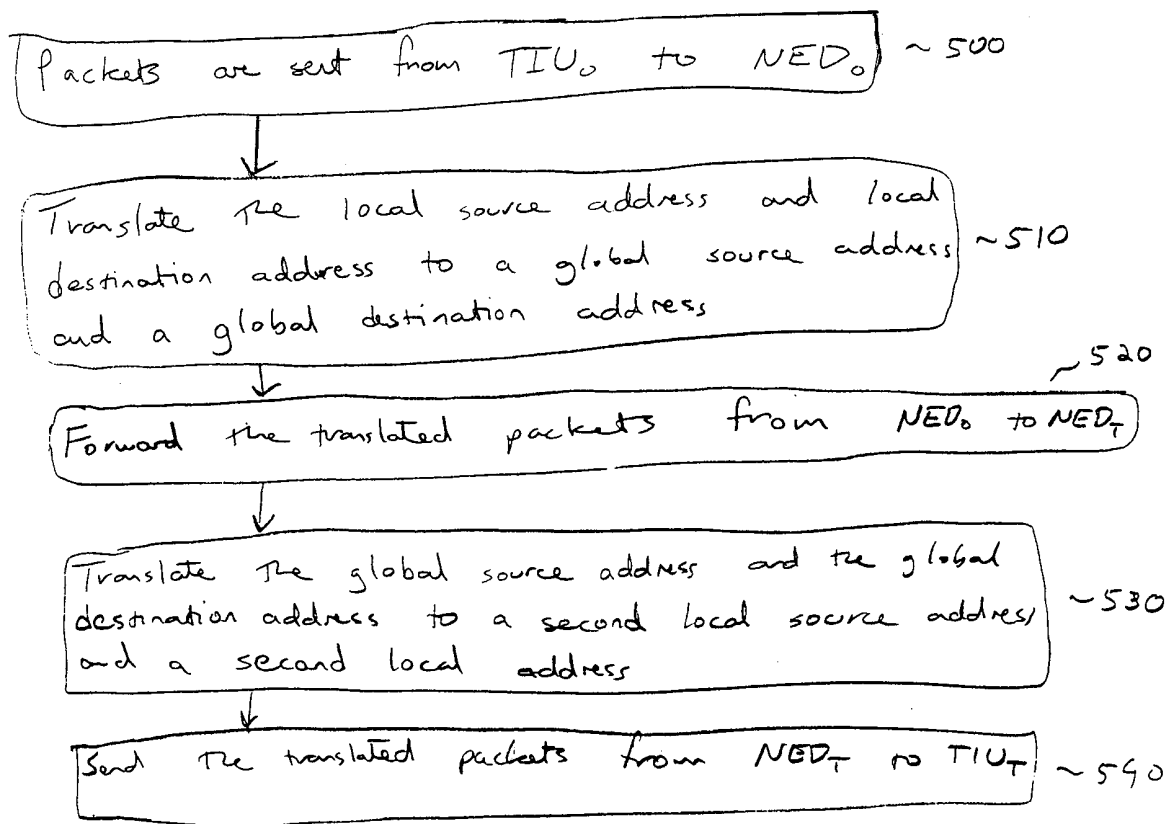 Packets are sent from TIU₀ to NED₀ ~ 500
Translate the local source address and local
destination address to a global source address ~510
and a global destination address
~ 520
Forward the translated packets from NED₀ to NED_T
Translate the global source address and the global
destination address to a second local source address ~530
and a second local address
Send the translated packets from NED_T to TIU_T ~540